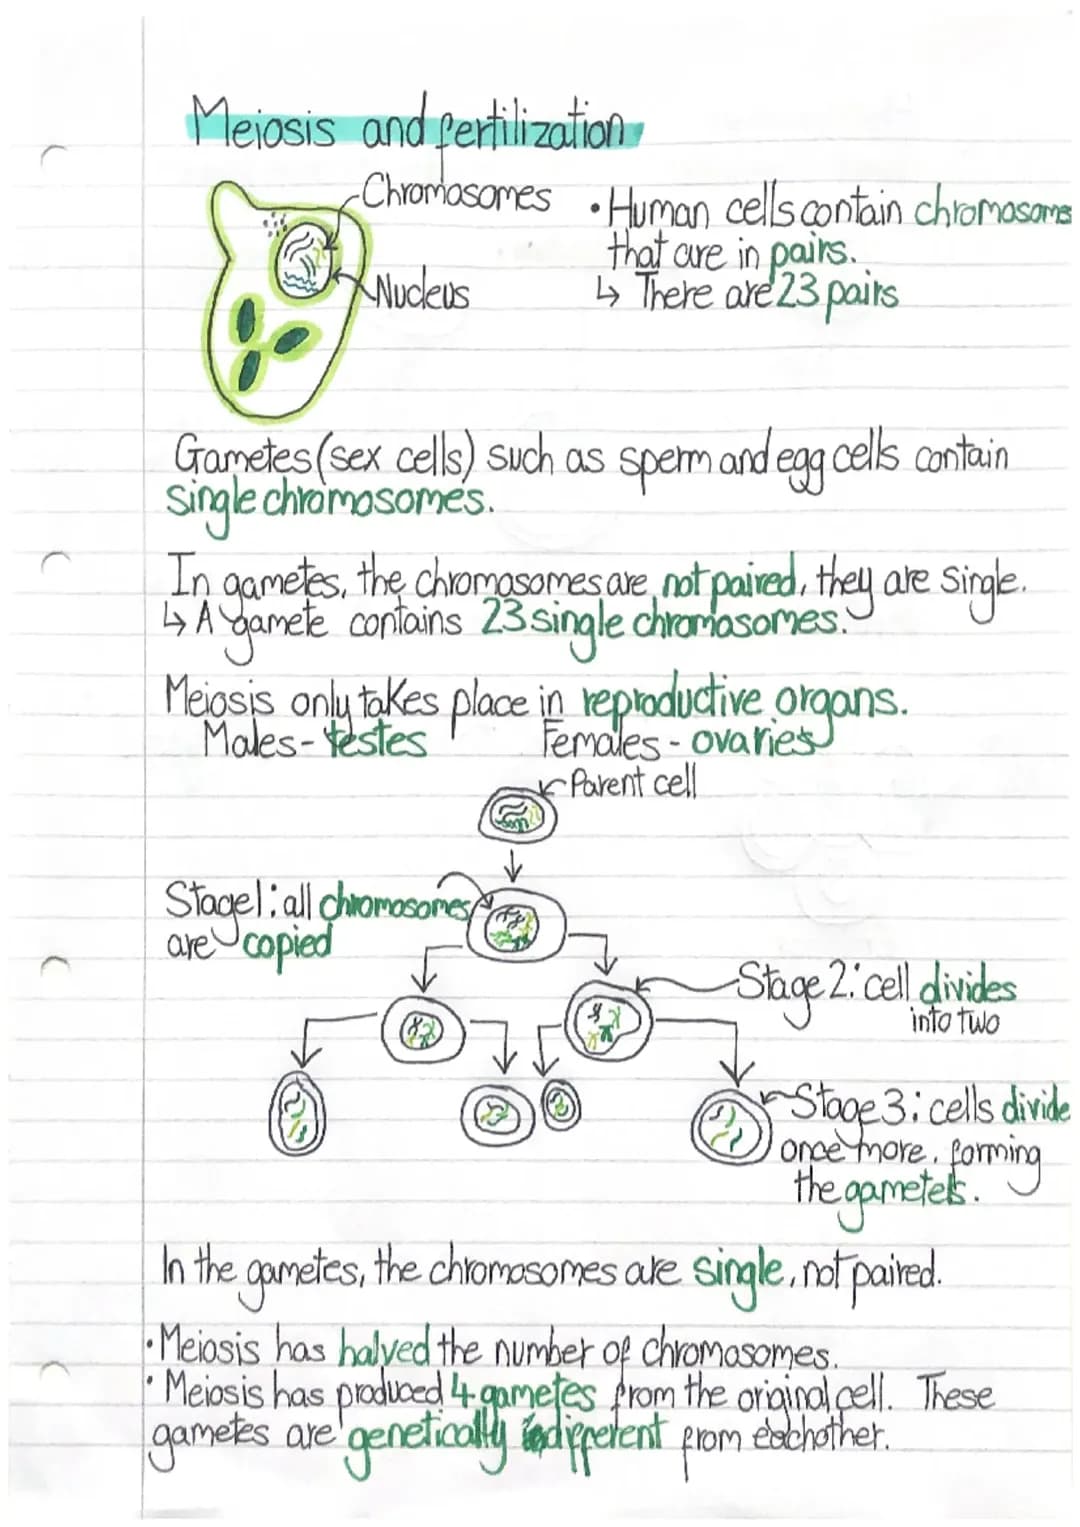 Meiosis and fertilization
Chromosomes
Nucleus
• Human cells contain chromosoms
that are in pairs.
↳ There are 23 pairs
Gametes (sex cells) such as sperm and egg cells contain
single chromosomes.
In gametes, the chromosomes are not paired, they are single.
↳ A gamete contains 23 single chromosomes.
Meiosis only takes place in reproductive organs.
Males - testes Females - ovaries
Parent cell
Stage 1: all chromosomes
are copied
Stage 2: cell divides
into two
Stage 3: cells divide
once more, forming
the gametels.
In the gametes, the chromosomes are single, not paired.
• Meiosis has halved the number of chromosomes.
• Meiosis has produced 4 gametes from the original cell. These
gametes are genetically different from eachother.